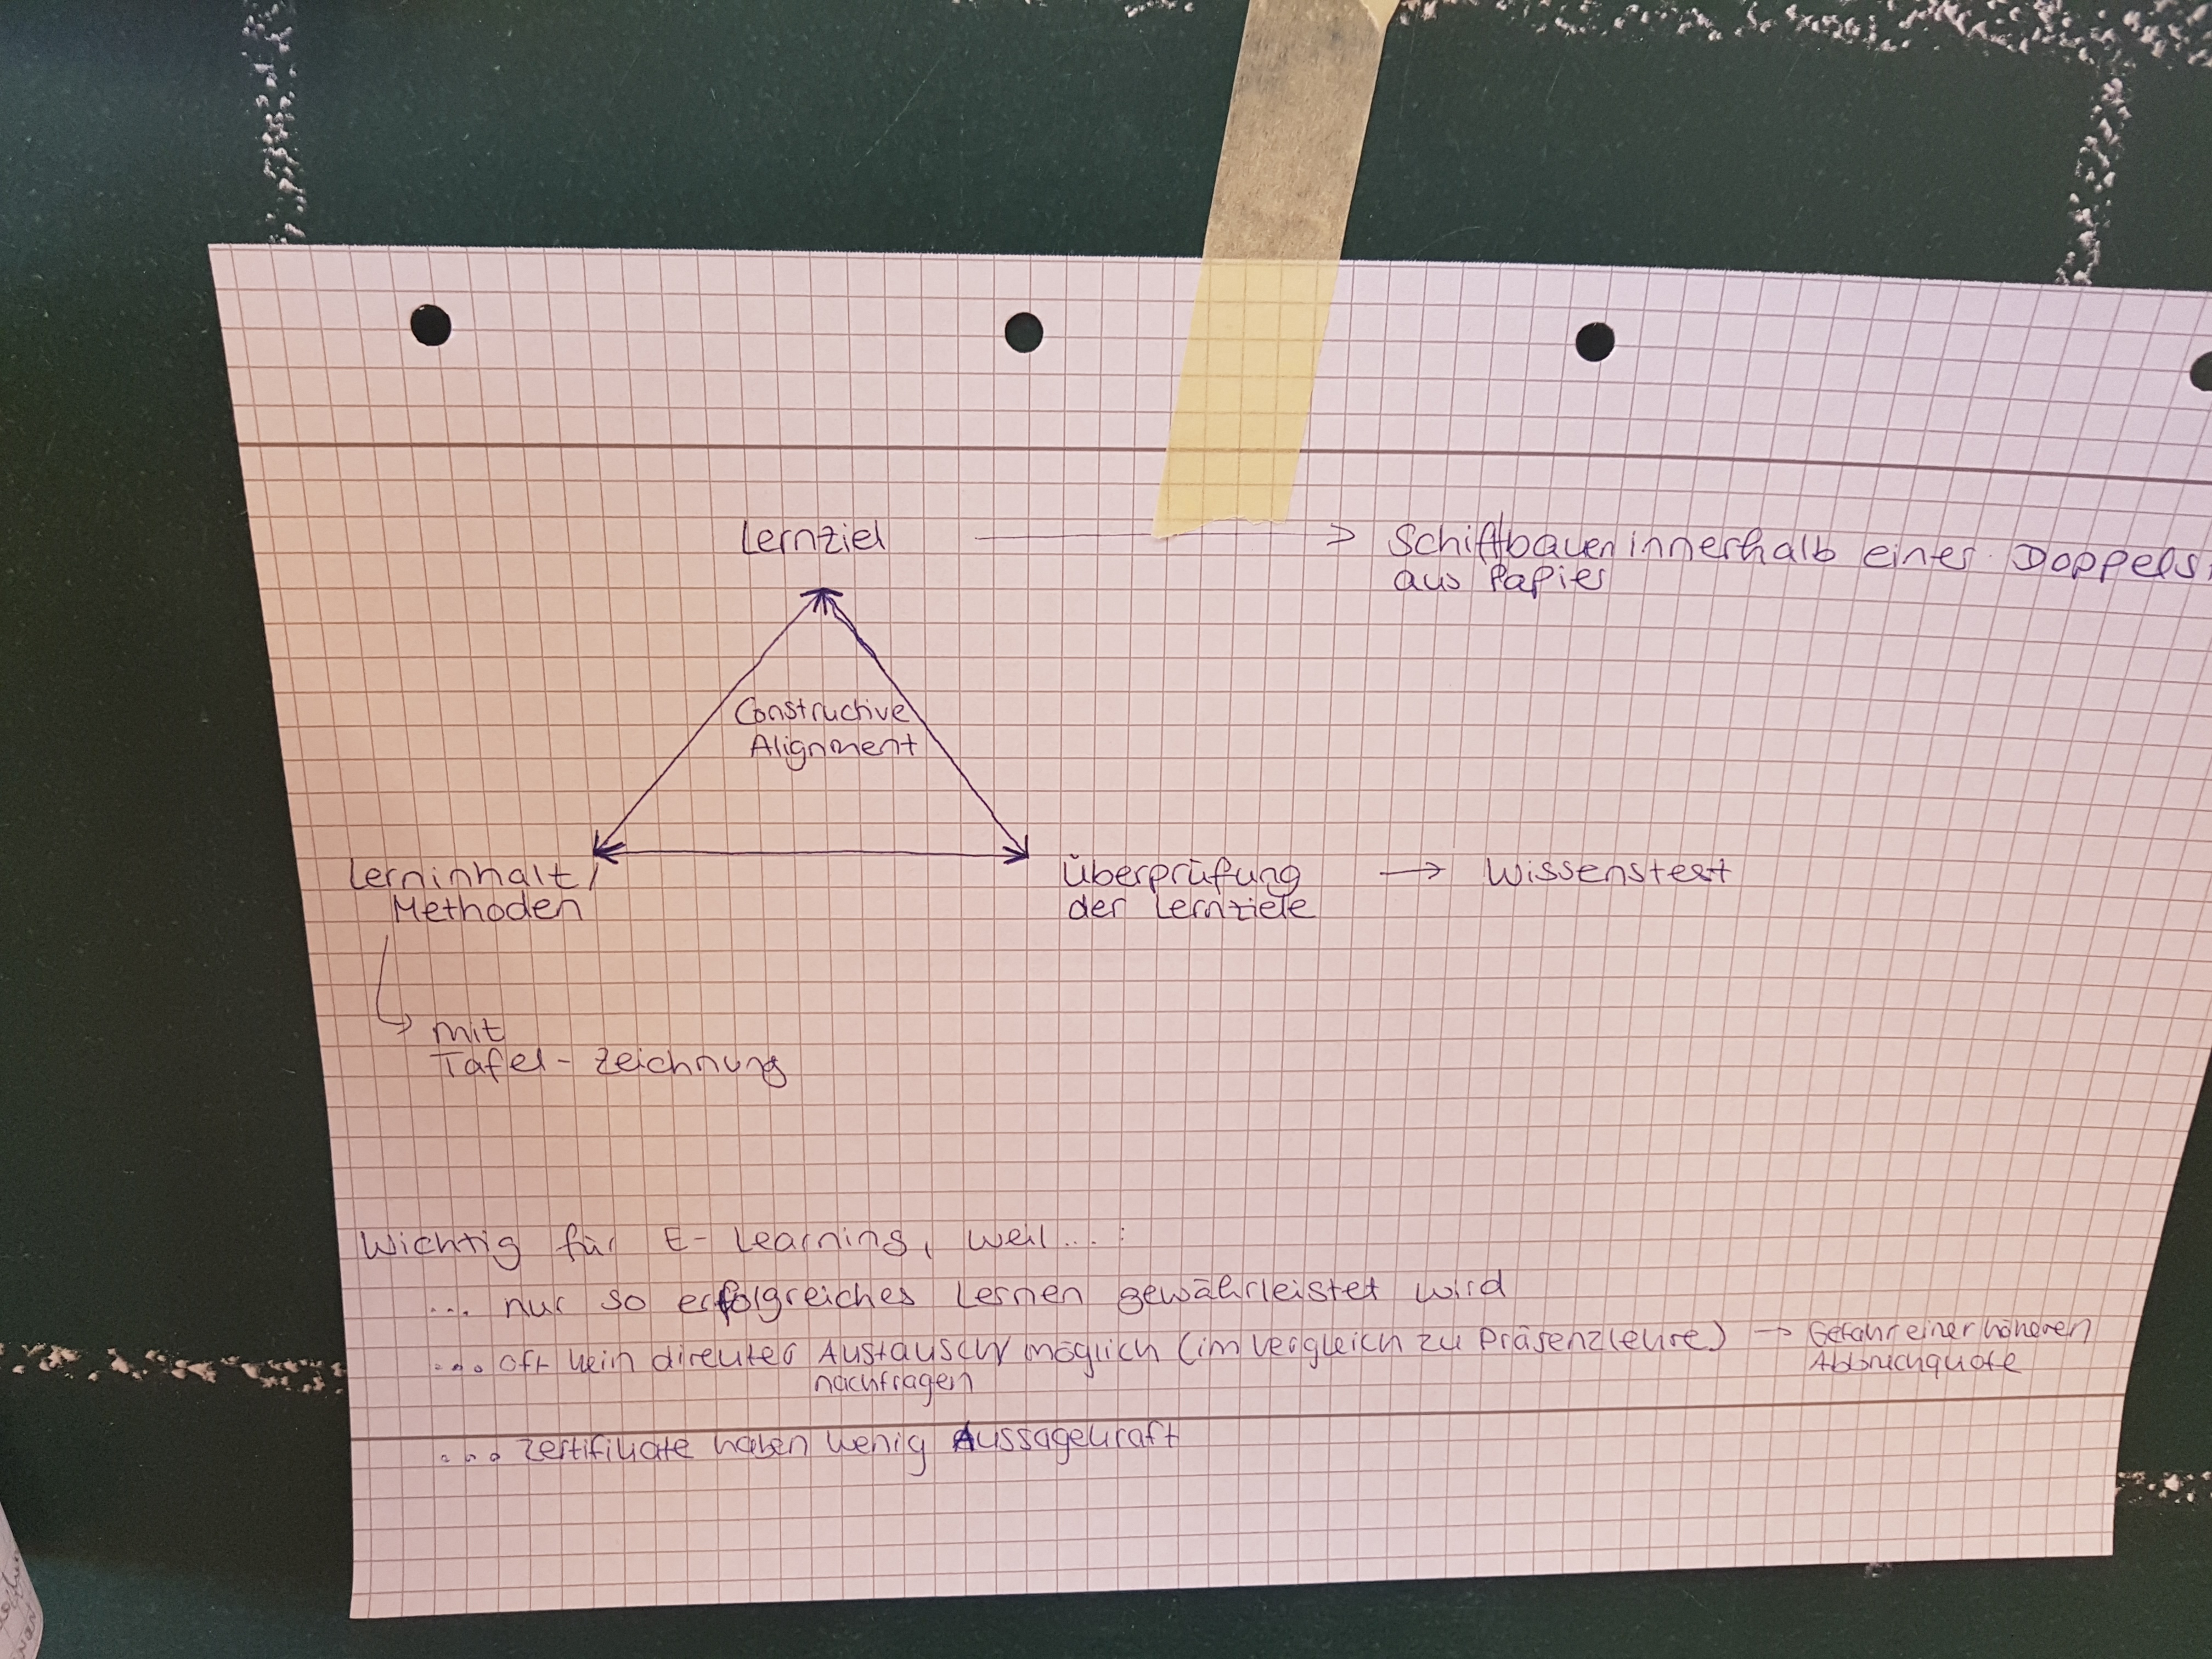 Lernziel → Schiffbauen innerhalb eines Doppels
aus Papier
Constructive
Alignment
Lerninhalt /
Methoden
Überprüfung → Wissenstest
der Lernziele
mit
Tafel-Zeichnung
Wichtig für E-Learning, weil...:
... nur so erfolgreiches Lernen gewährleistet wird
... oft kein direkter Austausch möglich (im Vergleich zu Präsenzlehre) → Gefahr einer höheren
Abbruchquote
nachfragen
... Zertifikate haben wenig Aussagekraft